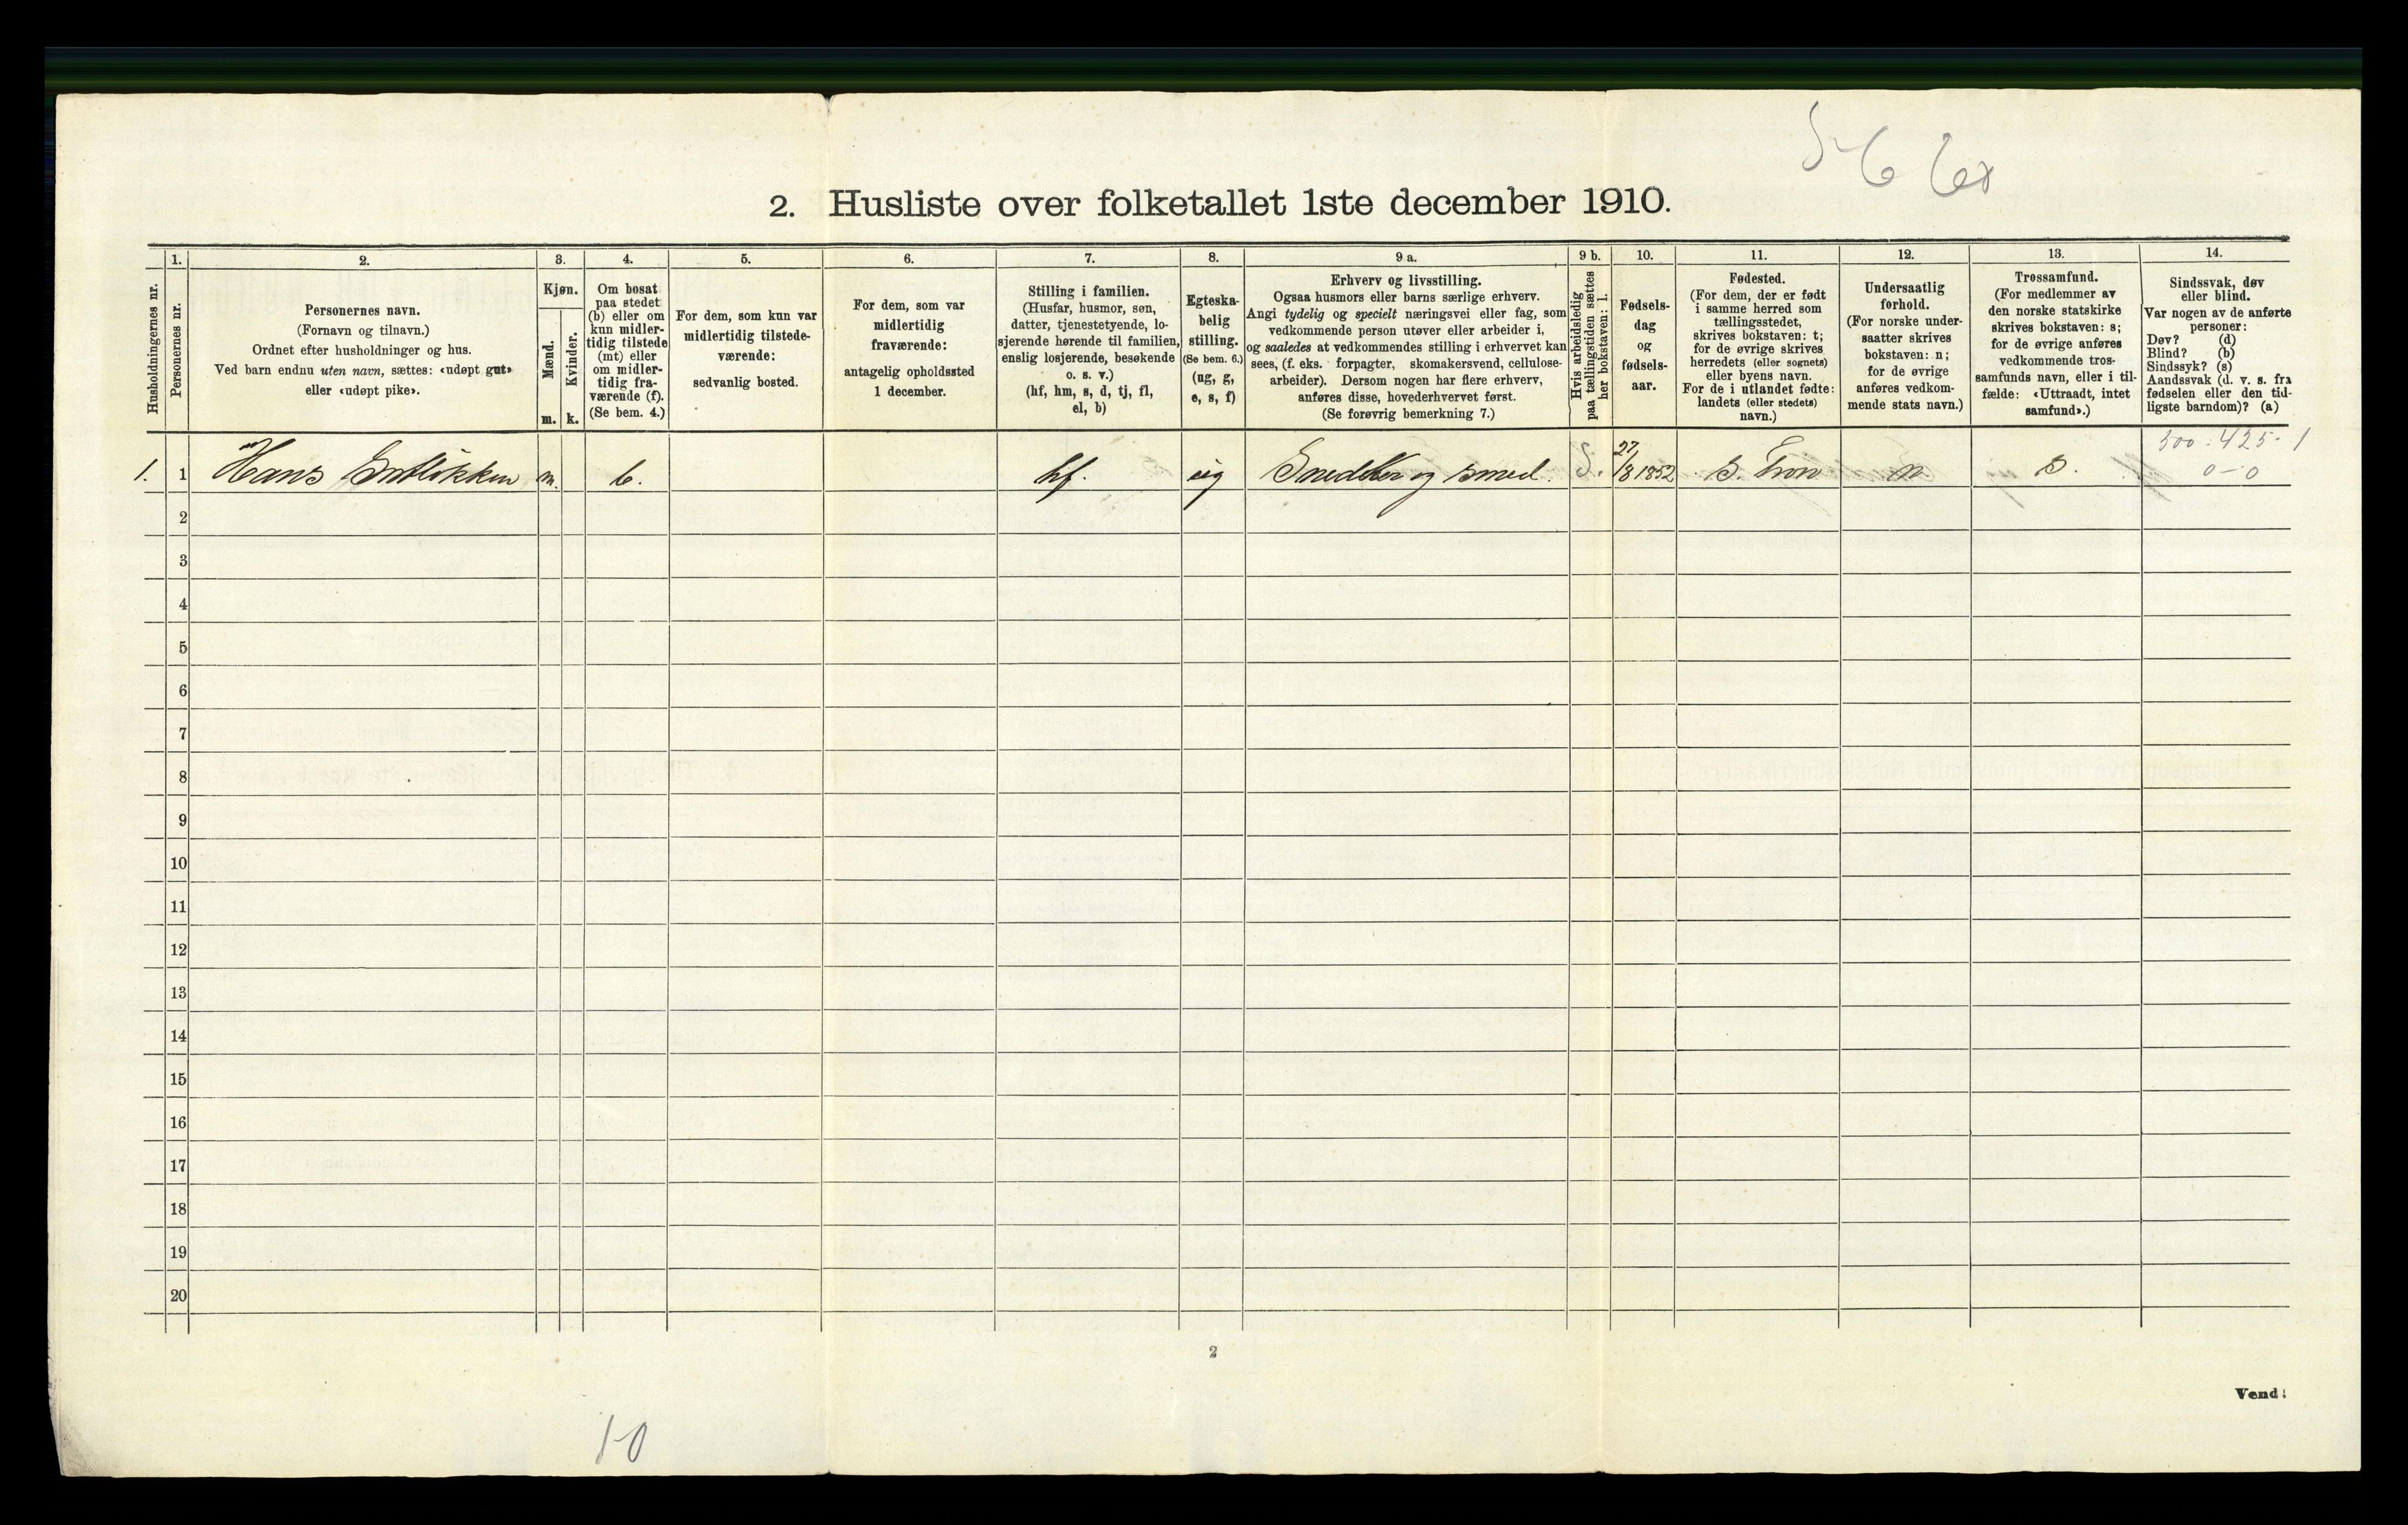 2. Husliste over folketallet 1ste december 1910.
Husholdningernes nr.
1.
Personernes nr.
2.
Personernes navn.
(Fornavn og tilnavn.)
Ordnet efter husholdninger og hus.
Ved barn endnu uten navn, sættes: «udøpt gut»
eller «udøpt pike».
3.
Kjøn.
Mænd.
Kvinder.
m. k.
4.
Om bosat
paa stedet
(b) eller om
kun midler-
tidig tilstede
(mt) eller
om midler-
tidig fra-
værende (f).
(Se bem. 4.)
5.
For dem, som kun var
midlertidig tilstede-
værende:
sedvanlig bosted.
6.
For dem, som var
midlertidig
fraværende:
antagelig opholdssted
1 december.
7.
Stilling i familien.
(Husfar, husmor, søn,
datter, tjenestetyende, lo-
sjerende hørende til familien,
enslig losjerende, besøkende
o. s. v.)
(hf, hm, s, d, tj, fl,
el, b)
8.
Egteska-
belig
stilling.
(Se bem. 6.)
(ug, g,
e, s, f)
9 a.
Erhverv og livsstilling.
Ogsaa husmors eller barns særlige erhverv.
Angi tydelig og specielt næringsvei eller fag, som
vedkommende person utøver eller arbeider i,
og saaledes at vedkommendes stilling i erhvervet kan
sees, (f. eks. forpagter, skomakersvend, cellulose-
arbeider). Dersom nogen har flere erhverv,
anføres disse, hovederhvervet først.
(Se forøvrig bemerkning 7.)
9 b.
Hvis arbeidsledig
paa tællingstiden sættes
her bokstaven: l.
10.
Fødsels-
dag
og
fødsels-
aar.
11.
Fødested.
(For dem, der er født
i samme herred som
tællingsstedet,
skrives bokstaven: t;
for de øvrige skrives
herredets (eller sognets)
eller byens navn.
For de i utlandet fødte:
landets (eller stedets)
navn.)
12.
Undersaatlig
forhold.
(For norske under-
saatter skrives
bokstaven: n;
for de øvrige
anføres vedkom-
mende stats navn.)
13.
Trossamfund.
(For medlemmer av
den norske statskirke
skrives bokstaven: s;
for de øvrige anføres
vedkommende tros-
samfunds navn, eller i til-
fælde: «Uttraadt, intet
samfund».)
14.
Sindssvak, døv
eller blind.
Var nogen av de anførte
personer:
Døv? (d)
Blind? (b)
Sindssyk? (s)
Aandssvak (d. v. s. fra
fødselen eller den tid-
ligste barndom)? (a)
500 - 425 - 1
0 - 0
1. 1 Hans m. b. hf. ug Snedker og smed. S. 27/8 1852 S. Fron n. s.
2
3
4
5
6
7
8
9
10
11
12
13
14
15
16
17
18
19
20
2
Vend!
1-0